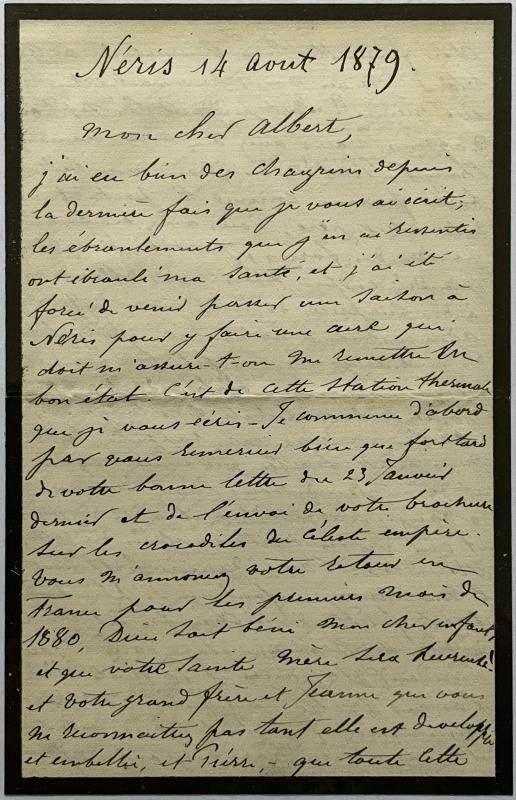 Néris 14 aout 1879.
Mon cher Albert,
j'ai eu bien des chagrins depuis
la dernière fois que je vous ai écrit;
les ébranlements que j'en ai ressentis
ont ébranlé ma santé, et j'ai été
forcé de venir passer une saison à
Néris pour y faire une cure qui
doit m'assure-t-on me remettre en
bon état. C'est de cette station thermale
que je vous écris - Je commence d'abord
par vous remercier bien que fort tard
de votre bonne lettre du 23 Janvier
dernier et de l'envoi de votre brochure
sur les crocodiles du Céleste empire.
Vous m'annoncez votre retour en
France pour les premiers mois de
1880, Dieu soit béni mon cher enfant,
et que votre sainte mère sera heureuse!
et votre grand frère et Jeanne que vous
ne reconnaitrez pas tant elle est developpée
et embellie, et Pierre, - que toute cette